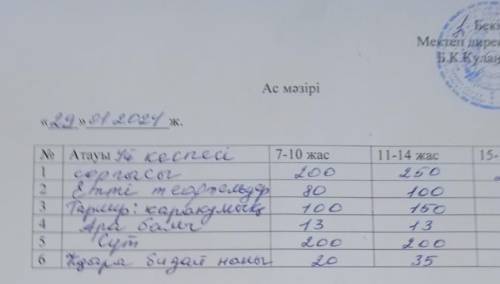 Бек
Мектеп дирек
Б.К.Кулан
Ас мәзірі
«29» 01 2024 ж.
№ Атауы Үй кеспесі 7-10 жас 11-14 жас 15-
1 сорпасы 200 250
2 Етті тефтельдер 80 100
3 Гарнир: қарақұмық 100 150
4 Ара балы 13 13
5 Сүт 200 200
6 Қара бидай наны 20 35